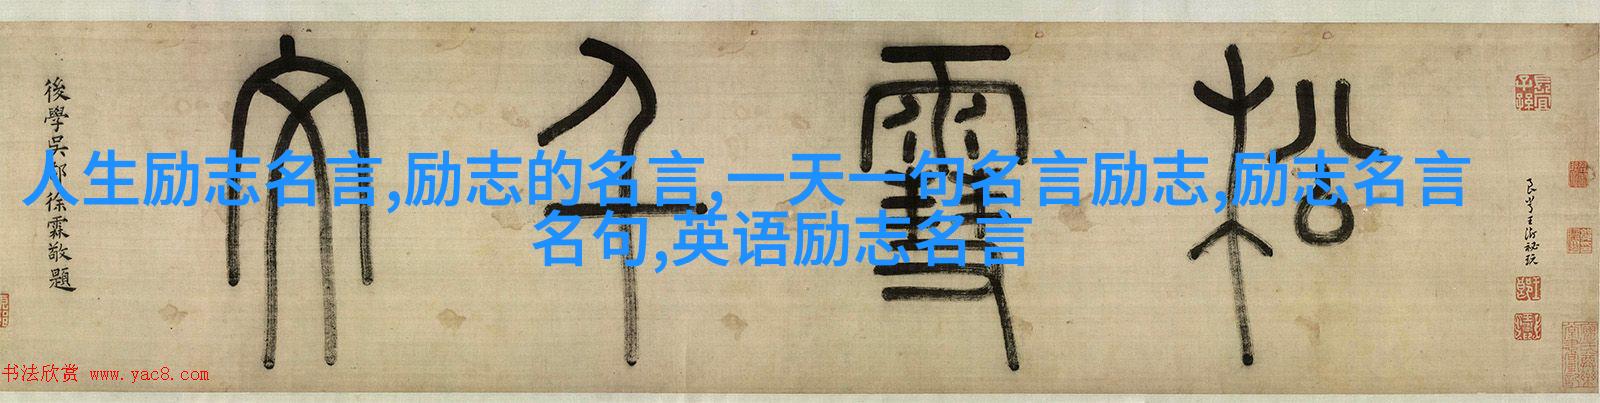 松雪千文
後學吳郡徐霖敬題
人生励志名言,励志的名言,一天一句名言励志,励志名言
名句,英语励志名言
長宜子孫
书法欣赏 www.yac8.com